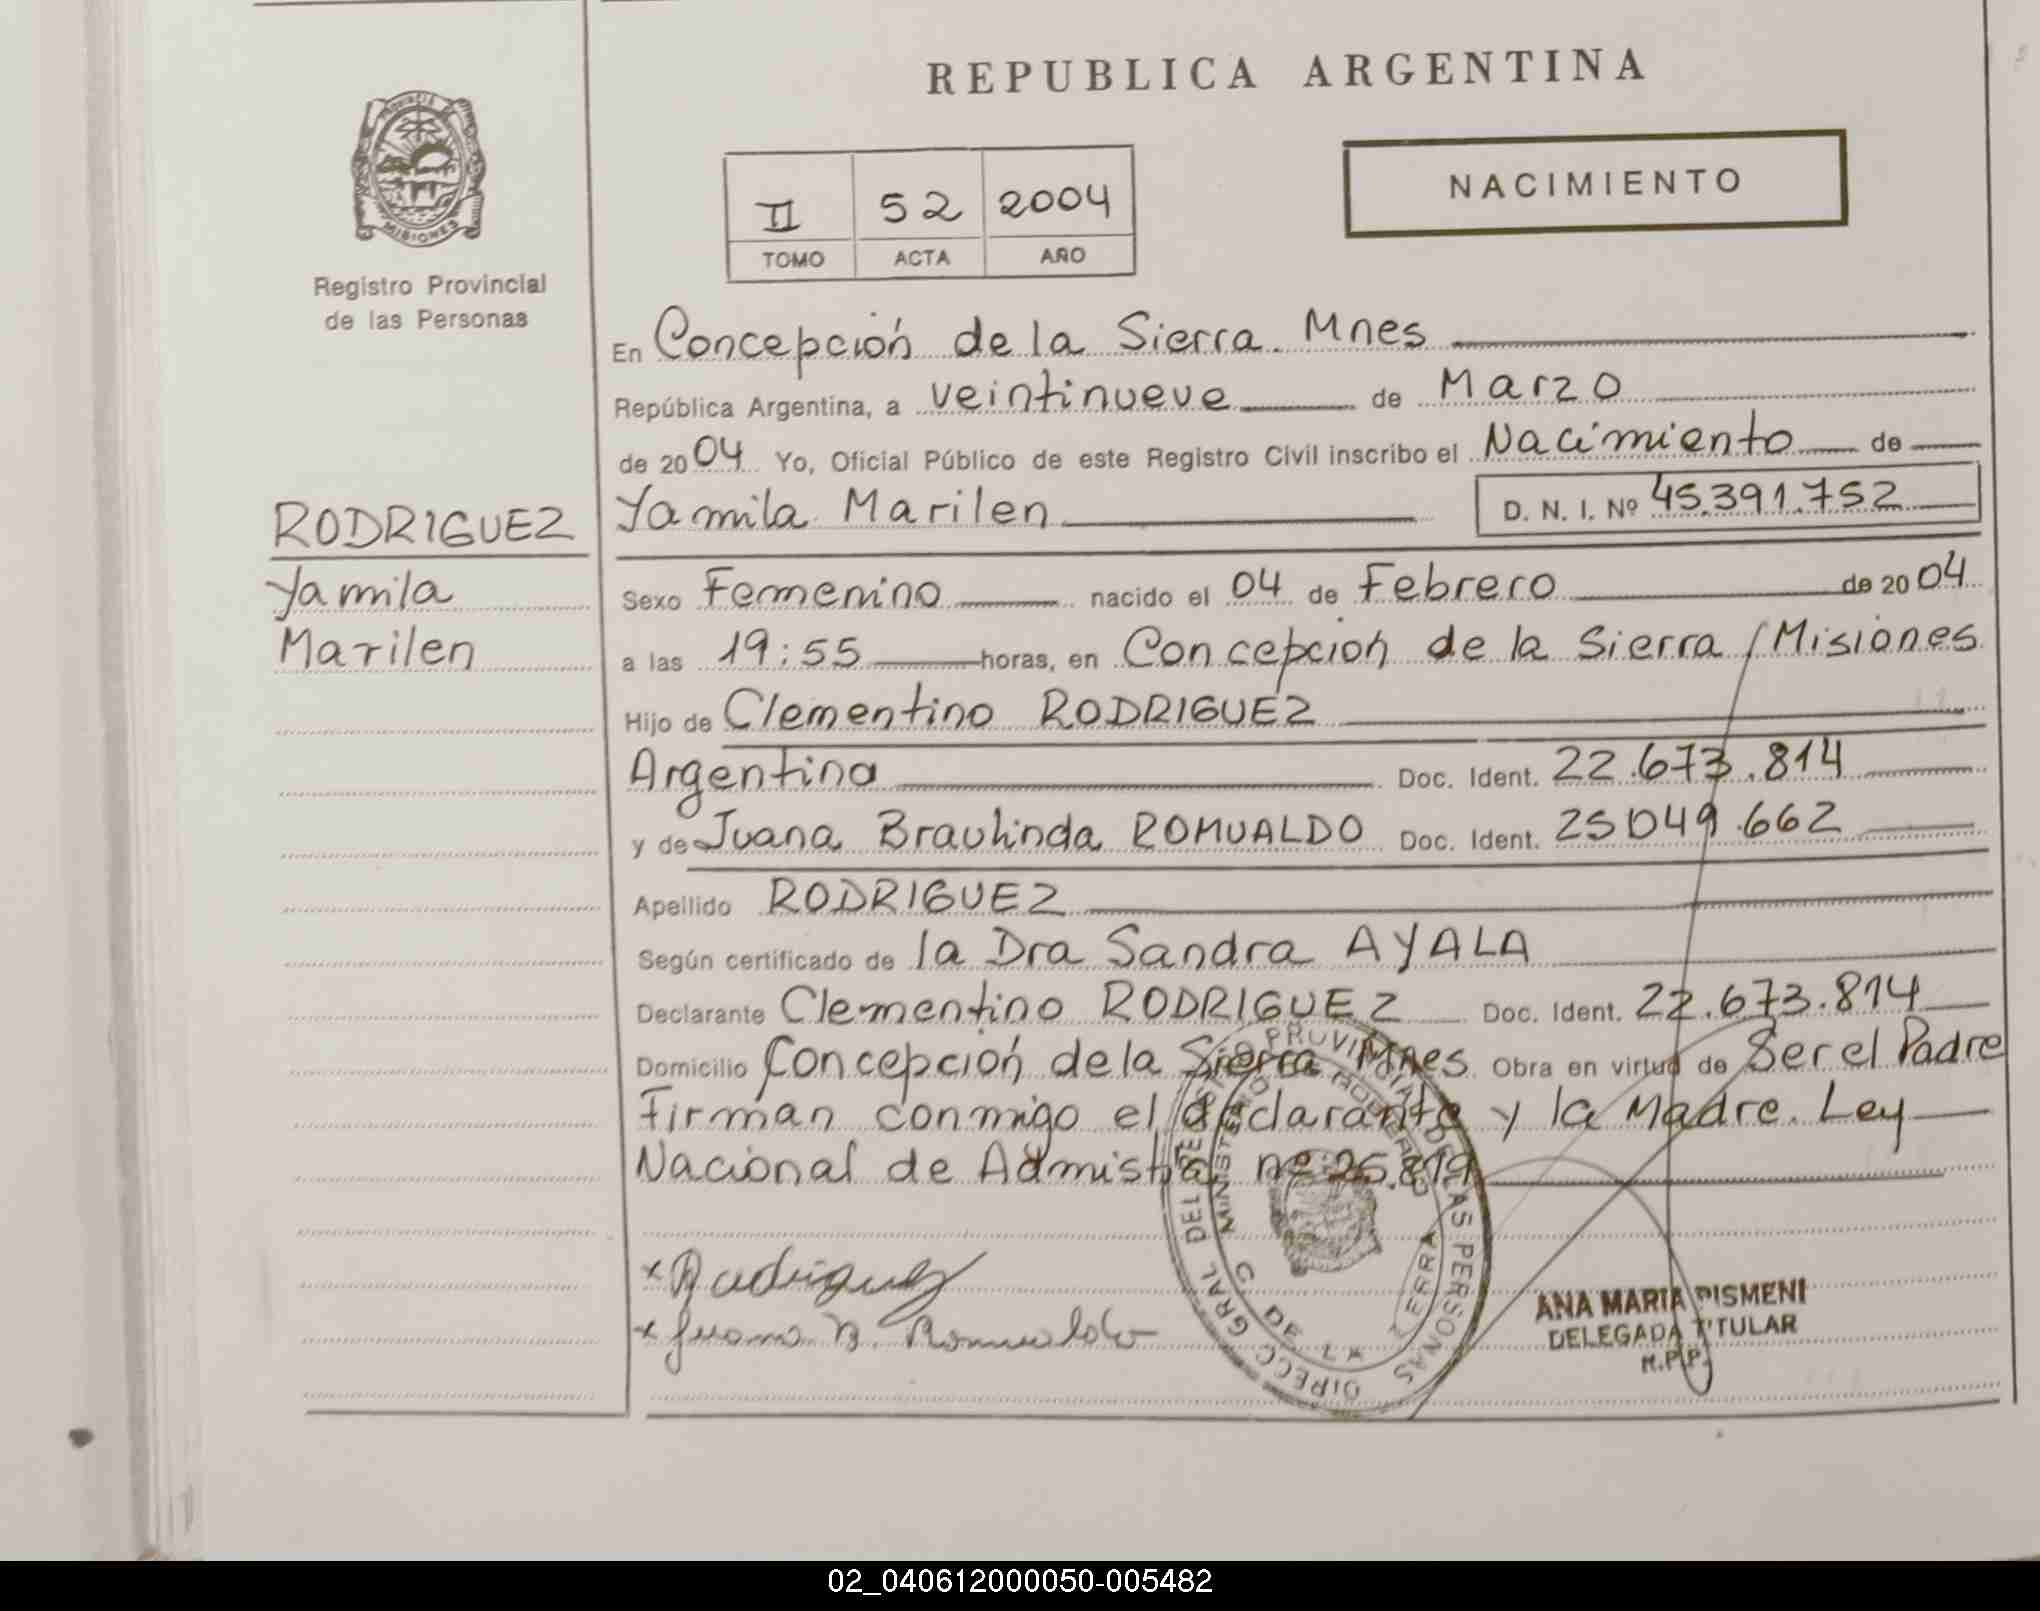 REPUBLICA ARGENTINA
PROVINCIA DE MISIONES
II 52 2004
TOMO ACTA AÑO
NACIMIENTO
Registro Provincial
de las Personas
RODRIGUEZ
Yamila
Marilen
En Concepción de la Sierra. Mnes
República Argentina, a veintinueve de Marzo
de 2004 Yo, Oficial Público de este Registro Civil inscribo el Nacimiento de
Yamila Marilen D. N. I. Nº 45.391.752
Sexo Femenino nacido el 04 de Febrero de 2004
a las 19:55 horas, en Concepción de la Sierra / Misiones
Hijo de Clementino RODRIGUEZ
Argentino Doc. Ident. 22.673.814
y de Juana Braulinda ROMUALDO Doc. Ident. 25049.662
Apellido RODRIGUEZ
Según certificado de la Dra Sandra AYALA
Declarante Clementino RODRIGUEZ Doc. Ident. 22.673.814
Domicilio Concepción de la Sierra Mnes Obra en virtud de Ser el Padre
Firman conmigo el declarante y la Madre. Ley
Nacional de nº 25.819
x Rodriguez
x Juana B. Romualdo
DIRECC GRAL DEL REGISTRO PROVINCIAL DE LAS PERSONAS
MINISTERIO DE GOBIERNO
C DE LA SIERRA
ANA MARIA PISMENI
DELEGADA TITULAR
R.P.P.
02_040612000050-005482